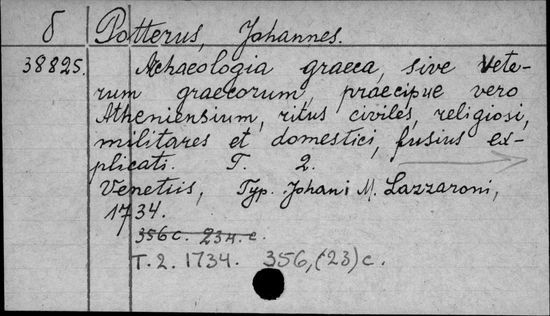 б Potterus, Johannes.
38825. Archaeologia graeca, sive Vete-
rum graecorum, praecipue vero
Atheniensium, ritus civiles, religiosi,
militares et domestici, fusius ex-
plicati. T. 2.
Venetiis, Typ. Johani M. Lazzaroni,
1734.
356 c. 234. c.
T. 2. 1734. 356,(23) c.